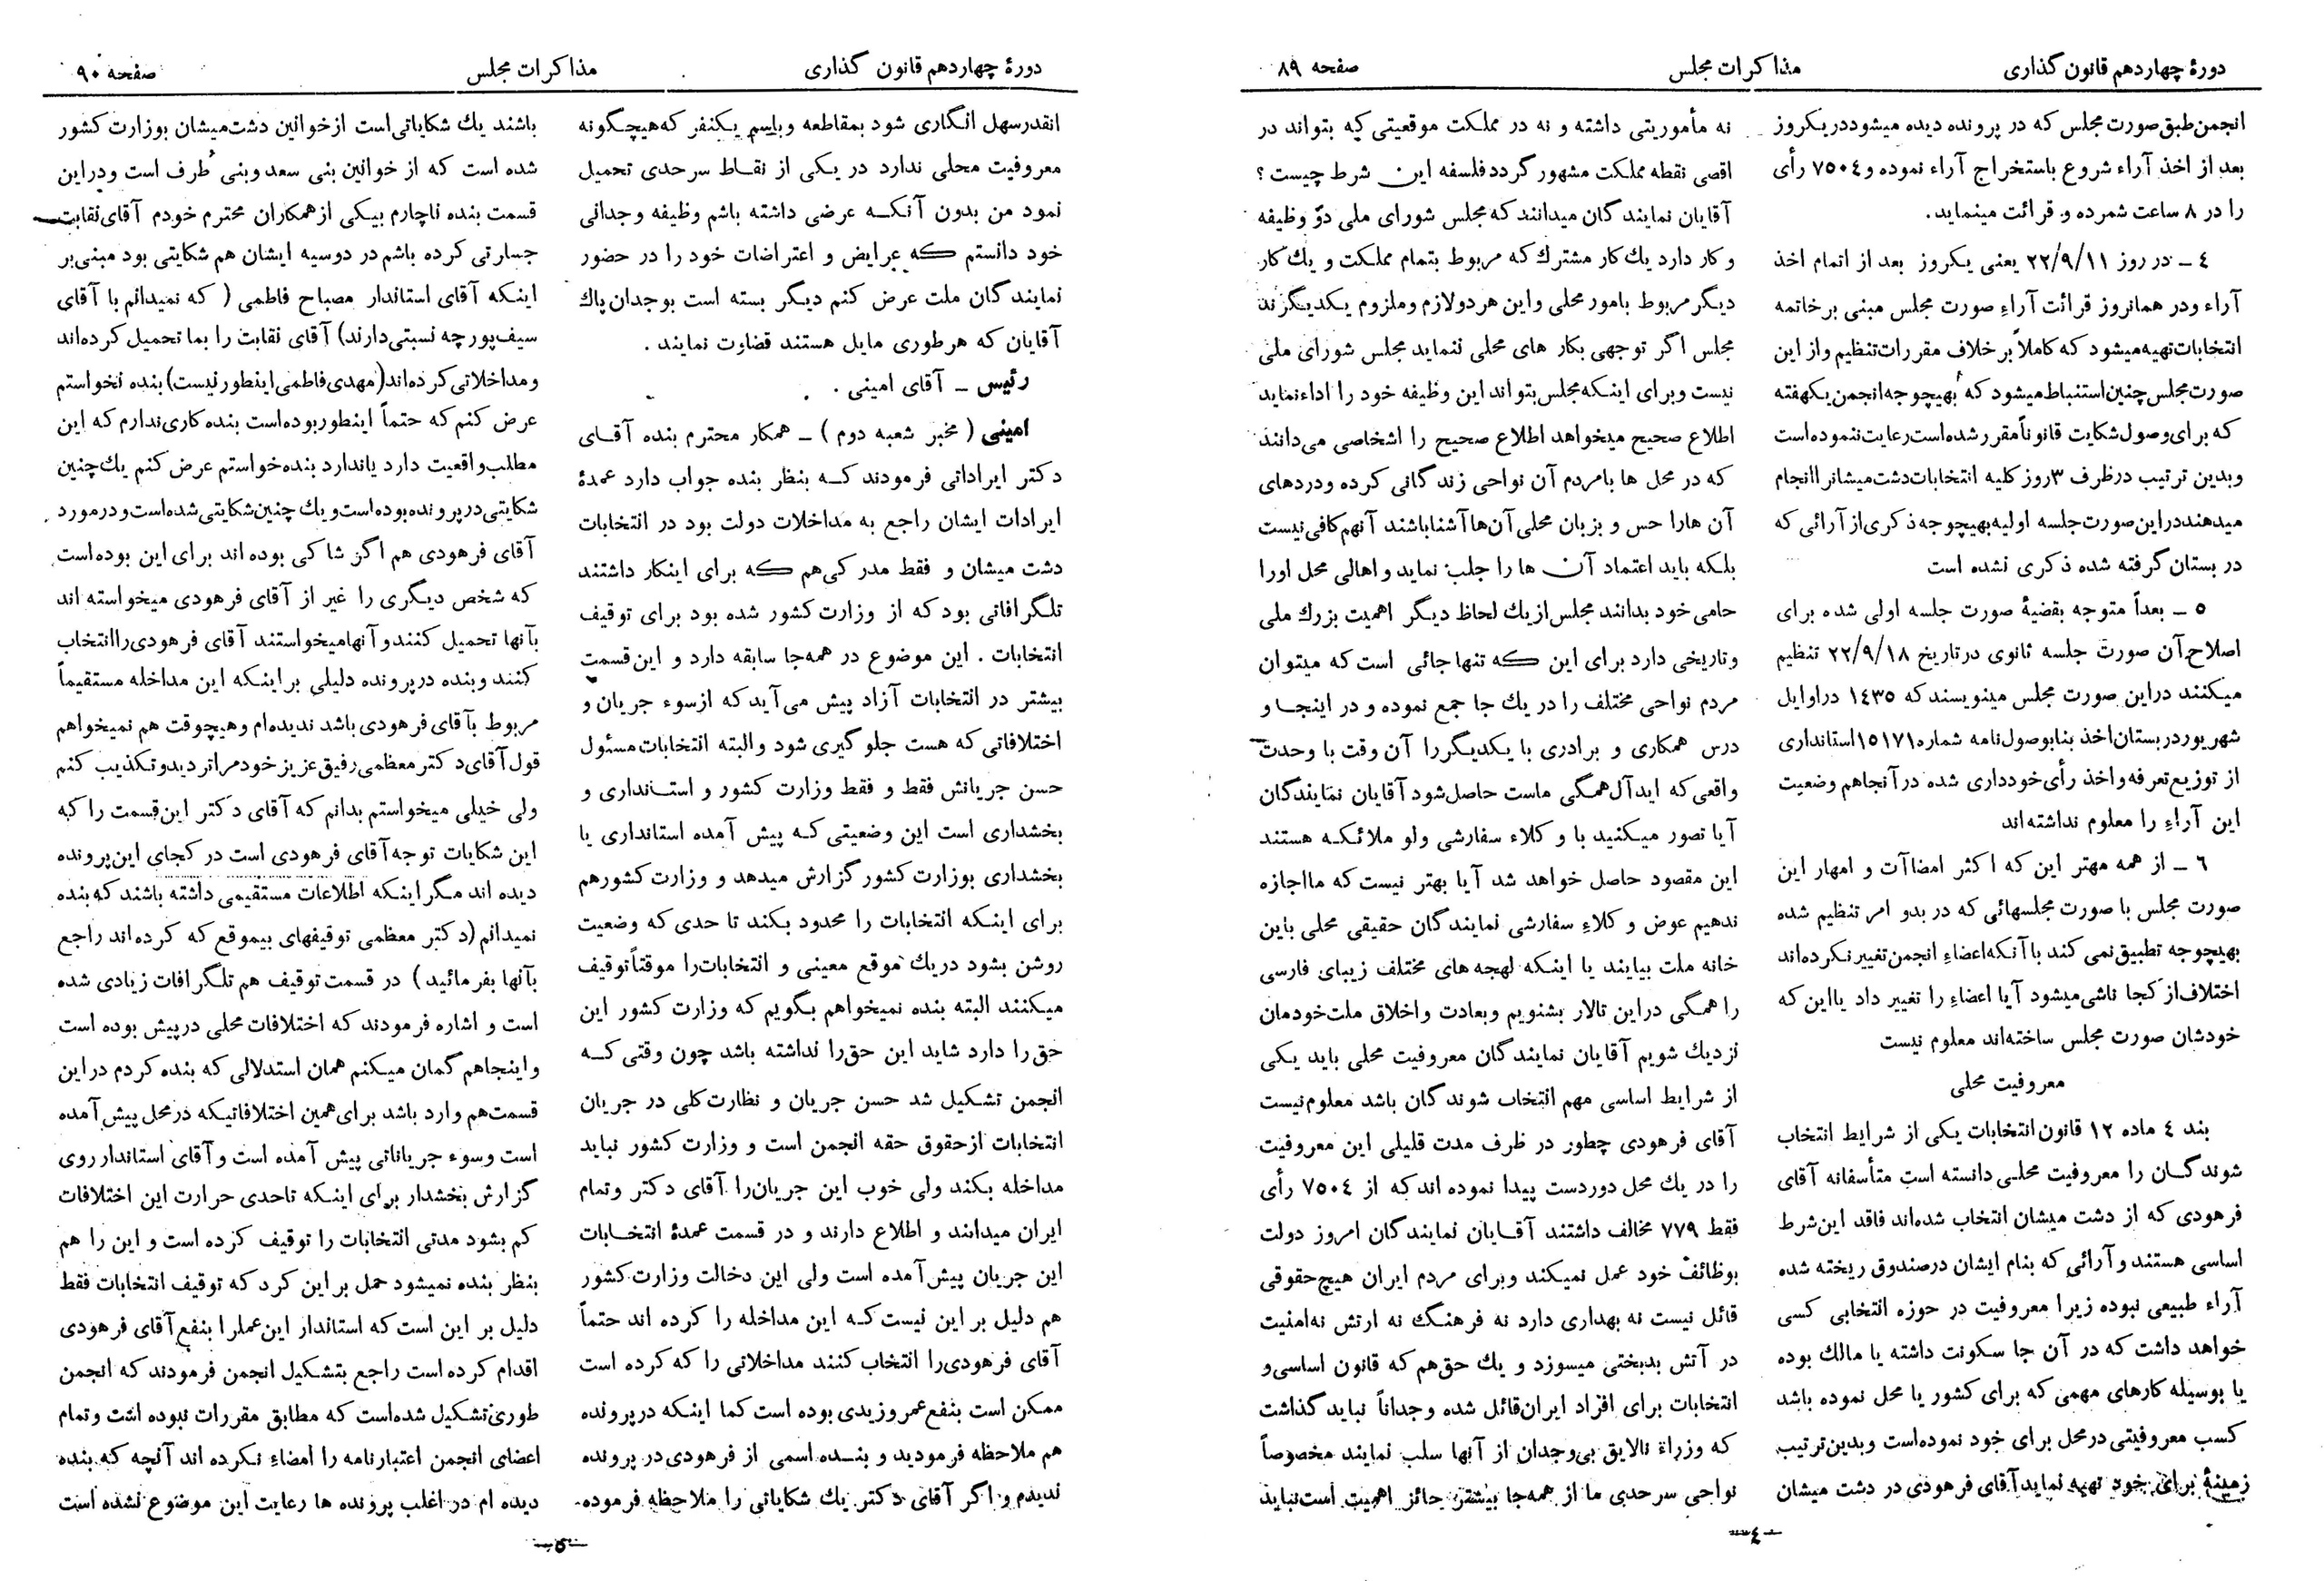 دورهٔ چهاردهم قانون گذاری
مذاکرات مجلس
صفحه ۸۹
انجمن طبق صورت مجلس که در پرونده دیده میشود در یکروز
بعد از اخذ آراء شروع باستخراج آراء نموده و ۷۵۰٤ رأی
را در ۸ ساعت شمرده و قرائت مینماید.
٤ ــ در روز ۲۲/۹/۱۱ یعنی یکروز بعد از اتمام اخذ
آراء ودر همانروز قرائت آراء صورت مجلس مبنی بر خاتمه
انتخابات تهیه میشود که کاملاً بر خلاف مقررات تنظیم واز این
صورت مجلس چنین استنباط میشود که بهیچوجه انجمن یکهفته
که برای وصول شکایت قانوناً مقرر شده است رعایت ننموده است
وبدین ترتیب در ظرف ۳ روز کلیه انتخابات دشت میشانرا انجام
میدهند در این صورت جلسه اولیه بهیچوجه ذکری از آرائی که
در بستان گرفته شده ذکری نشده است
٥ ــ بعداً متوجه بقضیهٔ صورت جلسه اولی شده برای
اصلاح آن صورت جلسه ثانوی در تاریخ ۲۲/۹/۱۸ تنظیم
میکنند در این صورت مجلس مینویسند که ۱٤۳٥ در اوایل
شهریور در بستان اخذ بنا بوصول نامه شماره ۱۵۱۷۱ استانداری
از توزیع تعرفه واخذ رأی خودداری شده در آنجاهم وضعیت
این آراء را معلوم نداشته‌اند
٦ ــ از همه مهتر این که اکثر امضاآت و امهار این
صورت مجلس با صورت مجلسهائی که در بدو امر تنظیم شده
بهیچوجه تطبیق نمی کند با آنکه اعضاء انجمن تغییر نکرده‌اند
اختلاف از کجا ناشی میشود آیا اعضاء را تغییر داد یا این که
خودشان صورت مجلس ساخته‌اند معلوم نیست
معروفیت محلی
بند ٤ ماده ۱۲ قانون انتخابات یکی از شرایط انتخاب
شوندگان را معروفیت محلی دانسته است متأسفانه آقای
فرهودی که از دشت میشان انتخاب شده‌اند فاقد این شرط
اساسی هستند و آرائی که بنام ایشان در صندوق ریخته شده
آراء طبیعی نبوده زیرا معروفیت در حوزه انتخابی کسی
خواهد داشت که در آن جا سکونت داشته یا مالك بوده
یا بوسیله کارهای مهمی که برای کشور یا محل نموده باشد
کسب معروفیتی در محل برای خود نموده است وبدین ترتیب
زمینهٔ برای خود تهیه نماید آقای فرهودی در دشت میشان
نه مأموریتی داشته و نه در مملکت موقعیتی که بتواند در
اقصی نقطه مملکت مشهور گردد فلسفه این شرط چیست ؟
آقایان نمایندگان میدانند که مجلس شورای ملی دو وظیفه
وکار دارد یك کار مشترك که مربوط بتمام مملکت و یك کار
دیگر مربوط بامور محلی واین هر دو لازم وملزوم یکدیگرند
مجلس اگر توجهی بکار های محلی ننماید مجلس شورای ملی
نیست وبرای اینکه مجلس بتواند این وظیفه خود را اداء نماید
اطلاع صحیح میخواهد اطلاع صحیح را اشخاصی می‌دانند
که در محل ها بامردم آن نواحی زندگانی کرده ودردهای
آن هارا حس و بزبان محلی آن‌ها آشنا باشند آنهم کافی نیست
بلکه باید اعتماد آن ها را جلب نماید و اهالی محل اورا
حامی خود بدانند مجلس از یك لحاظ دیگر اهمیت بزرك ملی
وتاریخی دارد برای این که تنها جائی است که میتوان
مردم نواحی مختلف را در یك جا جمع نموده و در اینجا و
درس همکاری و برادری با یکدیگر را آن وقت با وحدت
واقعی که ایدآل همگی ماست حاصل شود آقایان نمایندگان
آیا تصور میکنید با وکلاء سفارشی ولو ملائکه هستند
این مقصود حاصل خواهد شد آیا بهتر نیست که ما اجازه
ندهیم عوض وکلاء سفارشی نمایندگان حقیقی محلی باین
خانه ملت بیایند یا اینکه لهجه های مختلف زیبای فارسی
را همگی در این تالار بشنویم وبعادت واخلاق ملت خودمان
نزدیك شویم آقایان نمایندگان معروفیت محلی باید یکی
از شرایط اساسی مهم انتخاب شوندگان باشد معلوم نیست
آقای فرهودی چطور در ظرف مدت قلیلی این معروفیت
را در یك محل دوردست پیدا نموده اند که از ۷۵۰٤ رأی
فقط ۷۷۹ مخالف داشتند آقایان نمایندگان امروز دولت
بوظائف خود عمل نمیکند وبرای مردم ایران هیچ حقوقی
قائل نیست نه بهداری دارد نه فرهنگ نه ارتش نه امنیت
در آتش بدبختی میسوزد و یك حق هم که قانون اساسی و
انتخابات برای افراد ایران قائل شده وجداناً نباید گذاشت
که وزراء نالایق بی‌وجدان از آنها سلب نمایند مخصوصاً
نواحی سرحدی ما از همه‌جا بیشتر حائز اهمیت است نباید
ــ٤ــ
دورهٔ چهاردهم قانون گذاری
مذاکرات مجلس
صفحه ۹۰
انقدر سهل انگاری شود بمقاطعه وباسم یکنفر که هیچگونه
معروفیت محلی ندارد در یکی از نقاط سرحدی تحمیل
نمود من بدون آنکه عرضی داشته باشم وظیفه وجدانی
خود دانستم که عرایض و اعتراضات خود را در حضور
نمایندگان ملت عرض کنم دیگر بسته است بوجدان پاك
آقایان که هر طوری مایل هستند قضاوت نمایند .
رئیس ــ آقای امینی .
امینی ( مخبر شعبه دوم ) ــ همکار محترم بنده آقای
دکتر ایراداتی فرمودند که بنظر بنده جواب دارد عمدهٔ
ایرادات ایشان راجع به مداخلات دولت بود در انتخابات
دشت میشان و فقط مدرکی هم که برای اینکار داشتند
تلگرافاتی بود که از وزارت کشور شده بود برای توقیف
انتخابات . این موضوع در همه‌جا سابقه دارد و این قسمت
بیشتر در انتخابات آزاد پیش می‌آید که از سوء جریان و
اختلافاتی که هست جلوگیری شود والبته انتخابات مسئول
حسن جریانش فقط و فقط وزارت کشور و استانداری و
بخشداری است این وضعیتی که پیش آمده استانداری یا
بخشداری بوزارت کشور گزارش میدهد و وزارت کشورهم
برای اینکه انتخابات را محدود بکند تا حدی که وضعیت
روشن بشود در یك موقع معینی و انتخابات را موقتاً توقیف
میکنند البته بنده نمیخواهم بگویم که وزارت کشور این
حق را دارد شاید این حق را نداشته باشد چون وقتی که
انجمن تشکیل شد حسن جریان و نظارت کلی در جریان
انتخابات از حقوق حقه انجمن است و وزارت کشور نباید
مداخله بکند ولی خوب این جریان را آقای دکتر وتمام
ایران میدانند و اطلاع دارند و در قسمت عمدهٔ انتخابات
این جریان پیش آمده است ولی این دخالت وزارت کشور
هم دلیل بر این نیست که این مداخله را کرده اند حتماً
آقای فرهودی را انتخاب کنند مداخلاتی را که کرده است
ممکن است بنفع عمر وزیدی بوده است کما اینکه در پرونده
هم ملاحظه فرمودید و بنده اسمی از فرهودی در پرونده
ندیدم و اگر آقای دکتر یك شکایاتی را ملاحظه فرموده
باشند یك شکایاتی است از خوانین دشت میشان بوزارت کشور
شده است که از خوانین بنی سعد وبنی طرف است ودر این
قسمت بنده ناچارم بیکی از همکاران محترم خودم آقای نقابت
جسارتی کرده باشم در دوسیه ایشان هم شکایتی بود مبنی بر
اینکه آقای استاندار مصباح فاطمی ( که نمیدانم با آقای
سیف‌پور چه نسبتی دارند) آقای نقابت را بما تحمیل کرده‌اند
ومداخلاتی کرده‌اند (مهدی فاطمی اینطور نیست) بنده نخواستم
عرض کنم که حتماً اینطور بوده است بنده کاری ندارم که این
مطلب واقعیت دارد یا ندارد بنده خواستم عرض کنم یك چنین
شکایتی در پرونده بوده است و یك چنین شکایتی شده است و در مورد
آقای فرهودی هم اگر شاکی بوده اند برای این بوده است
که شخص دیگری را غیر از آقای فرهودی میخواسته اند
بآنها تحمیل کنند و آنها میخواستند آقای فرهودی را انتخاب
کنند و بنده در پرونده دلیلی بر اینکه این مداخله مستقیماً
مربوط بآقای فرهودی باشد ندیده‌ام وهیچوقت هم نمیخواهم
قول آقای دکتر معظمی رفیق عزیز خودم را تردید وتکذیب کنم
ولی خیلی میخواستم بدانم که آقای دکتر این قسمت را که
این شکایات توجه آقای فرهودی است در کجای این پرونده
دیده اند مگر اینکه اطلاعات مستقیمی داشته باشند که بنده
نمیدانم (دکتر معظمی توقیفهای بیموقع که کرده‌اند راجع
بآنها بفرمائید ) در قسمت توقیف هم تلگرافات زیادی شده
است و اشاره فرمودند که اختلافات محلی در پیش بوده است
واینجاهم گمان میکنم همان استدلالی که بنده کردم در این
قسمت هم وارد باشد برای همین اختلافاتیکه در محل پیش آمده
است وسوء جریاناتی پیش آمده است و آقای استاندار روی
گزارش بخشدار برای اینکه تاحدی حرارت این اختلافات
کم بشود مدتی انتخابات را توقیف کرده است و این را هم
بنظر بنده نمیشود حمل بر این کرد که توقیف انتخابات فقط
دلیل بر این است که استاندار این عمل را بنفع آقای فرهودی
اقدام کرده است راجع بتشکیل انجمن فرمودند که انجمن
طوری تشکیل شده است که مطابق مقررات نبوده است وتمام
اعضای انجمن اعتبارنامه را امضاء نکرده اند آنچه که بنده
دیده ام در اغلب پرونده ها رعایت این موضوع نشده است
ــ٥ــ